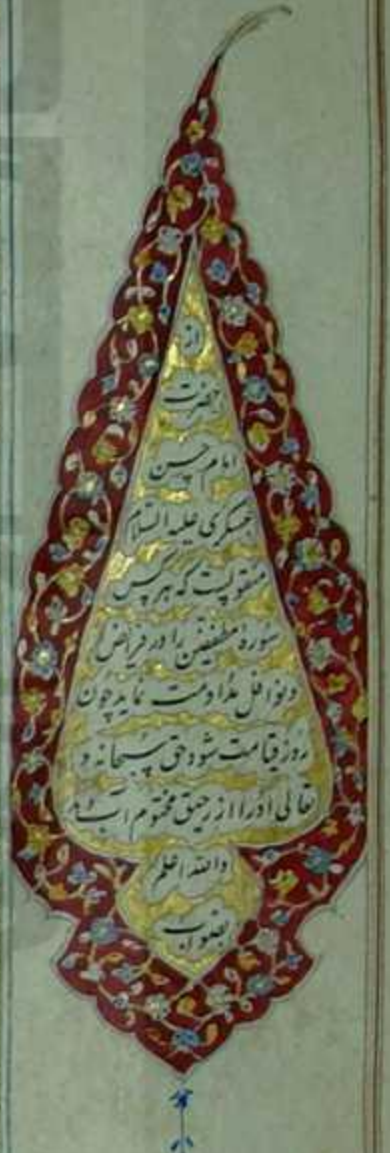 از
حضرت
امام حسن
عسکری علیه السلام
منقولست که هر کس
سورهٔ مطففین را در فرایض
و نوافل مداومت نماید چون
روز قیامت شود حق سبحانه و
تعالی او را از رحیق مختوم آب دهد
والله اعلم
بصواب